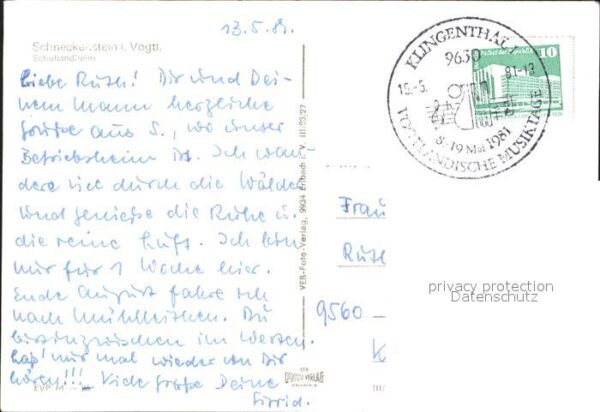 13.5.81.
Schneckenstein i. Vogtl.
Schullandheim
Liebe Ruth! Dir und Dei-
nem Mann herzliche
Grüße aus S., wo unser
Betriebsheim ist. Ich wan-
dere viel durch die Wälder
und genieße die Ruhe u.
die reine Luft. Ich bin
nur für 1 Woche hier.
Ende August fahre ich
nach Mühlleithen. Du
bist inzwischen im Westen.
Laß' mir mal wieder von Dir
hören!!! Viele Grüße Deine
Sigrid.
EVP M
VEB-Foto-Verlag, 9934 Erlbach i. V.
KLINGENTHAL 1
9630
15.-5. 81-12
8.-19 Mai 1981
VOGTLÄNDISCHE MUSIKTAGE
10
Frau
Ruth
9560
privacy protection
Datenschutz